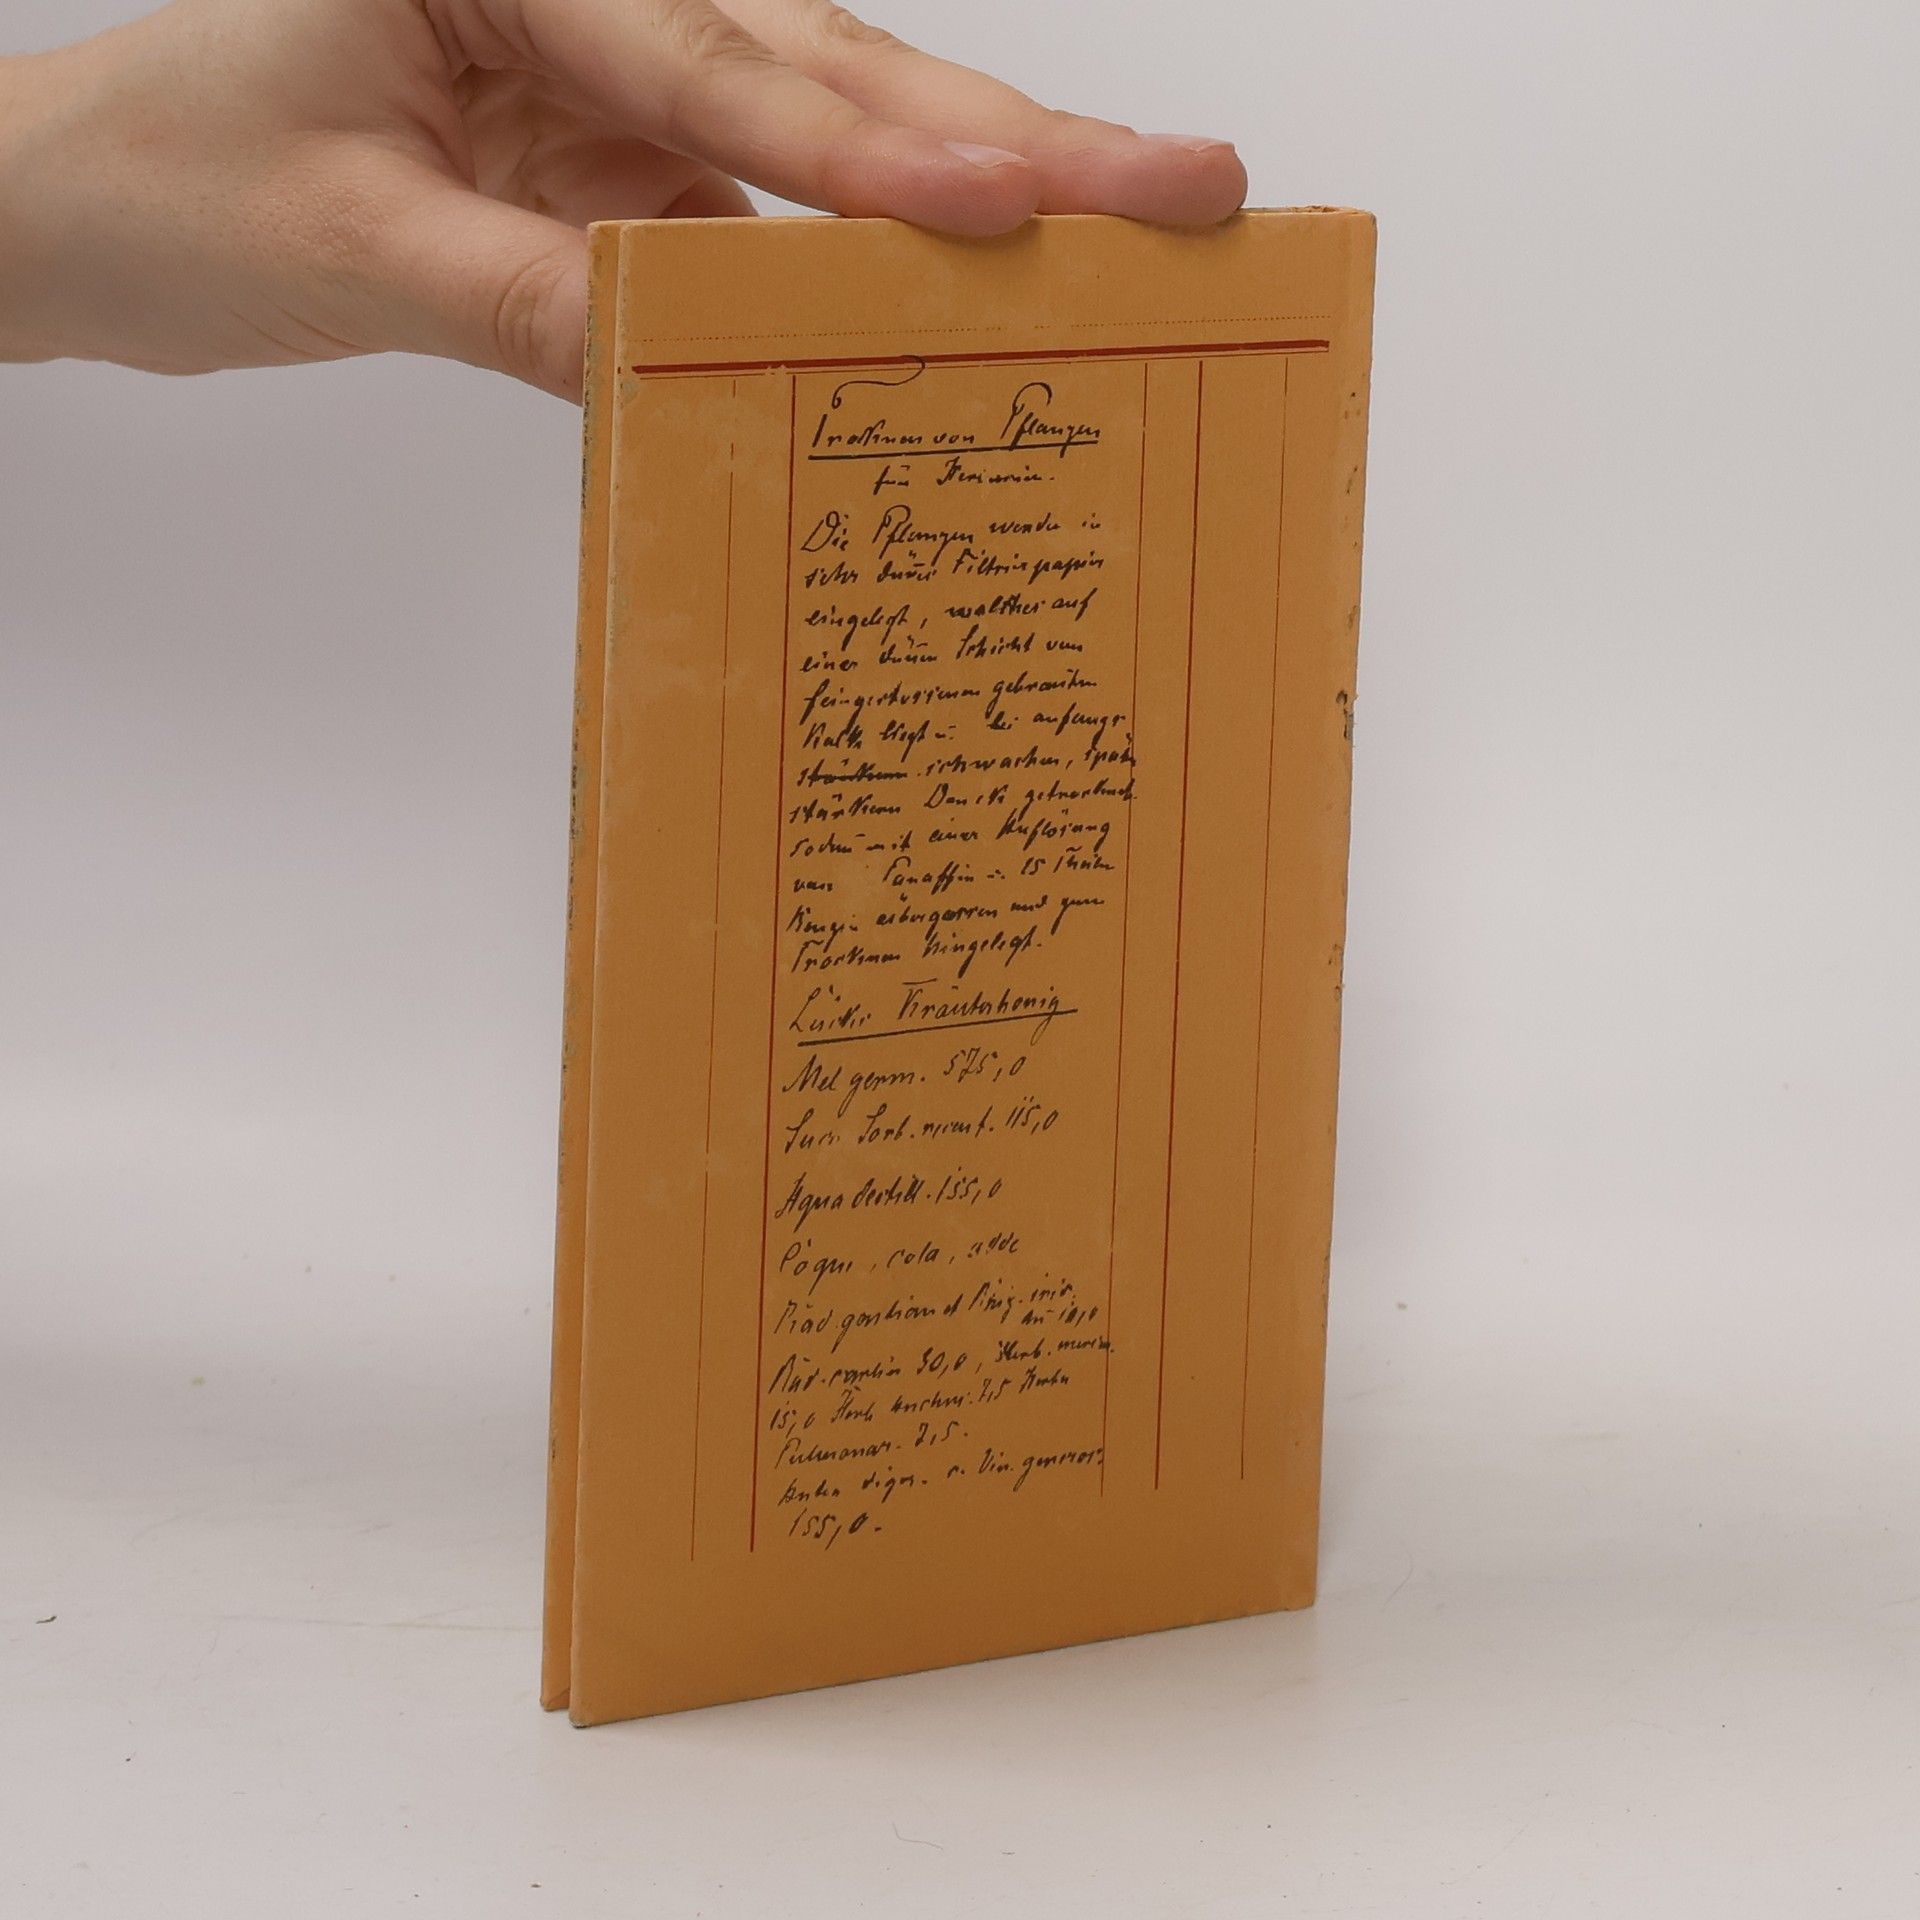 Trocknen von Pflanzen
für Herbarien.
Die Pflanzen werden in
sehr dünnes Filtrierpapier
eingelegt, welches auf
einer dünnen Schicht von
feingestossenem gebrannten
Kalk liegt u. bei anfangs
stärkerem schwachem, später
stärkerem Druck getrocknet
sodann mit einer Auflösung
von Paraffin in 15 Theilen
Benzin übergossen und zum
Trocknen hingelegt.
Lücks Kräuterhonig
Mel germ. 575,0
Succ. Sorb. recent. 115,0
Aqua destill. 155,0
Coque, cola, adde
Rad. gentian et Rhiz. irid.
ān 10,0
Rad. carlin 30,0, Herb. mercur.
15,0 Herb anchus. 7,5 Herba
Pulmonar. 7,5.
Antea diger. c. Vin. generos.
155,0.